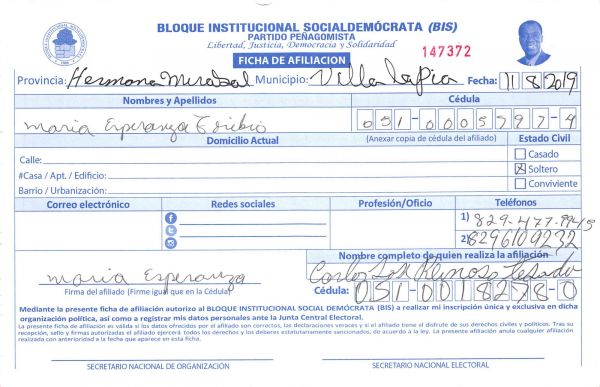 BLOQUE INSTITUCIONAL SOCIALDEMÓCRATA (BIS)
PARTIDO PEÑAGOMISTA
Libertad, Justicia, Democracia y Solidaridad
FICHA DE AFILIACION
147372
Provincia: Hermana Mirabal Municipio: Villa Tapia Fecha: 11 8 2019
Nombres y Apellidos Cédula
maria Esperanza Toribio 051-0005797-4
Domicilio Actual (Anexar copia de cédula del afiliado) Estado Civil
Calle: Casado
#Casa / Apt. / Edificio: Soltero
Barrio / Urbanización: Conviviente
Correo electrónico Redes sociales Profesión/Oficio Teléfonos
1) 829-477-9945
2) 8296109232
Nombre completo de quien realiza la afiliación
maria Esperanza Carlos Reinoso
Firma del afiliado (Firme igual que en la Cédula) Cédula: 051-0018278-0
Mediante la presente ficha de afiliación autorizo al BLOQUE INSTITUCIONAL SOCIAL DEMÓCRATA (BIS) a realizar mi inscripción única y exclusiva en dicha
organización política, así como a registrar mis datos personales ante la Junta Central Electoral.
La presente ficha de afiliación es válida si los datos ofrecidos por el afiliado son correctos, las declaraciones veraces y si el afiliado tiene el disfrute de sus derechos civiles y políticos. Tras su
recepción, sello y firmas autorizadas el afiliado ejercerá todos los derechos y los deberes estatutariamente sancionados, de acuerdo a la ley. La presente afiliación anula cualquier afiliación
realizada con anterioridad a la fecha que aparece en esta ficha.
SECRETARIO NACIONAL DE ORGANIZACIÓN SECRETARIO NACIONAL ELECTORAL